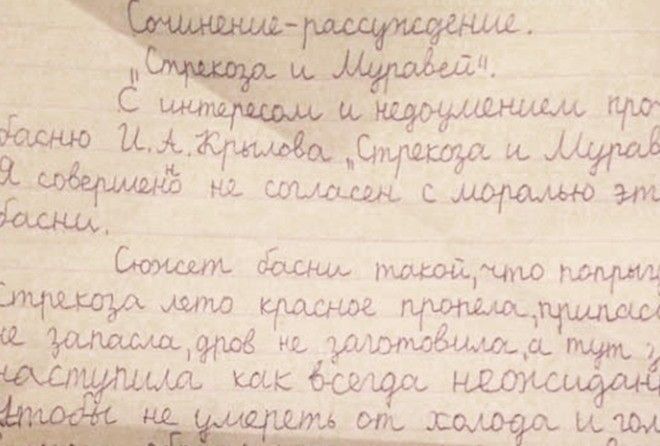 Сочинение-рассуждение.
„Стрекоза и Муравей".
С интересом и недоумением про
басню И.А.Крылова „Стрекоза и Мурав
Я совершенно не согласен с моралью эт
басни.
Сюжет басни такой, что попрыг
Стрекоза лето красное пропела, припасо
не запасла, дров не заготовила, а тут з
наступила как всегда неожидан
Чтобы не умереть от холода и гол